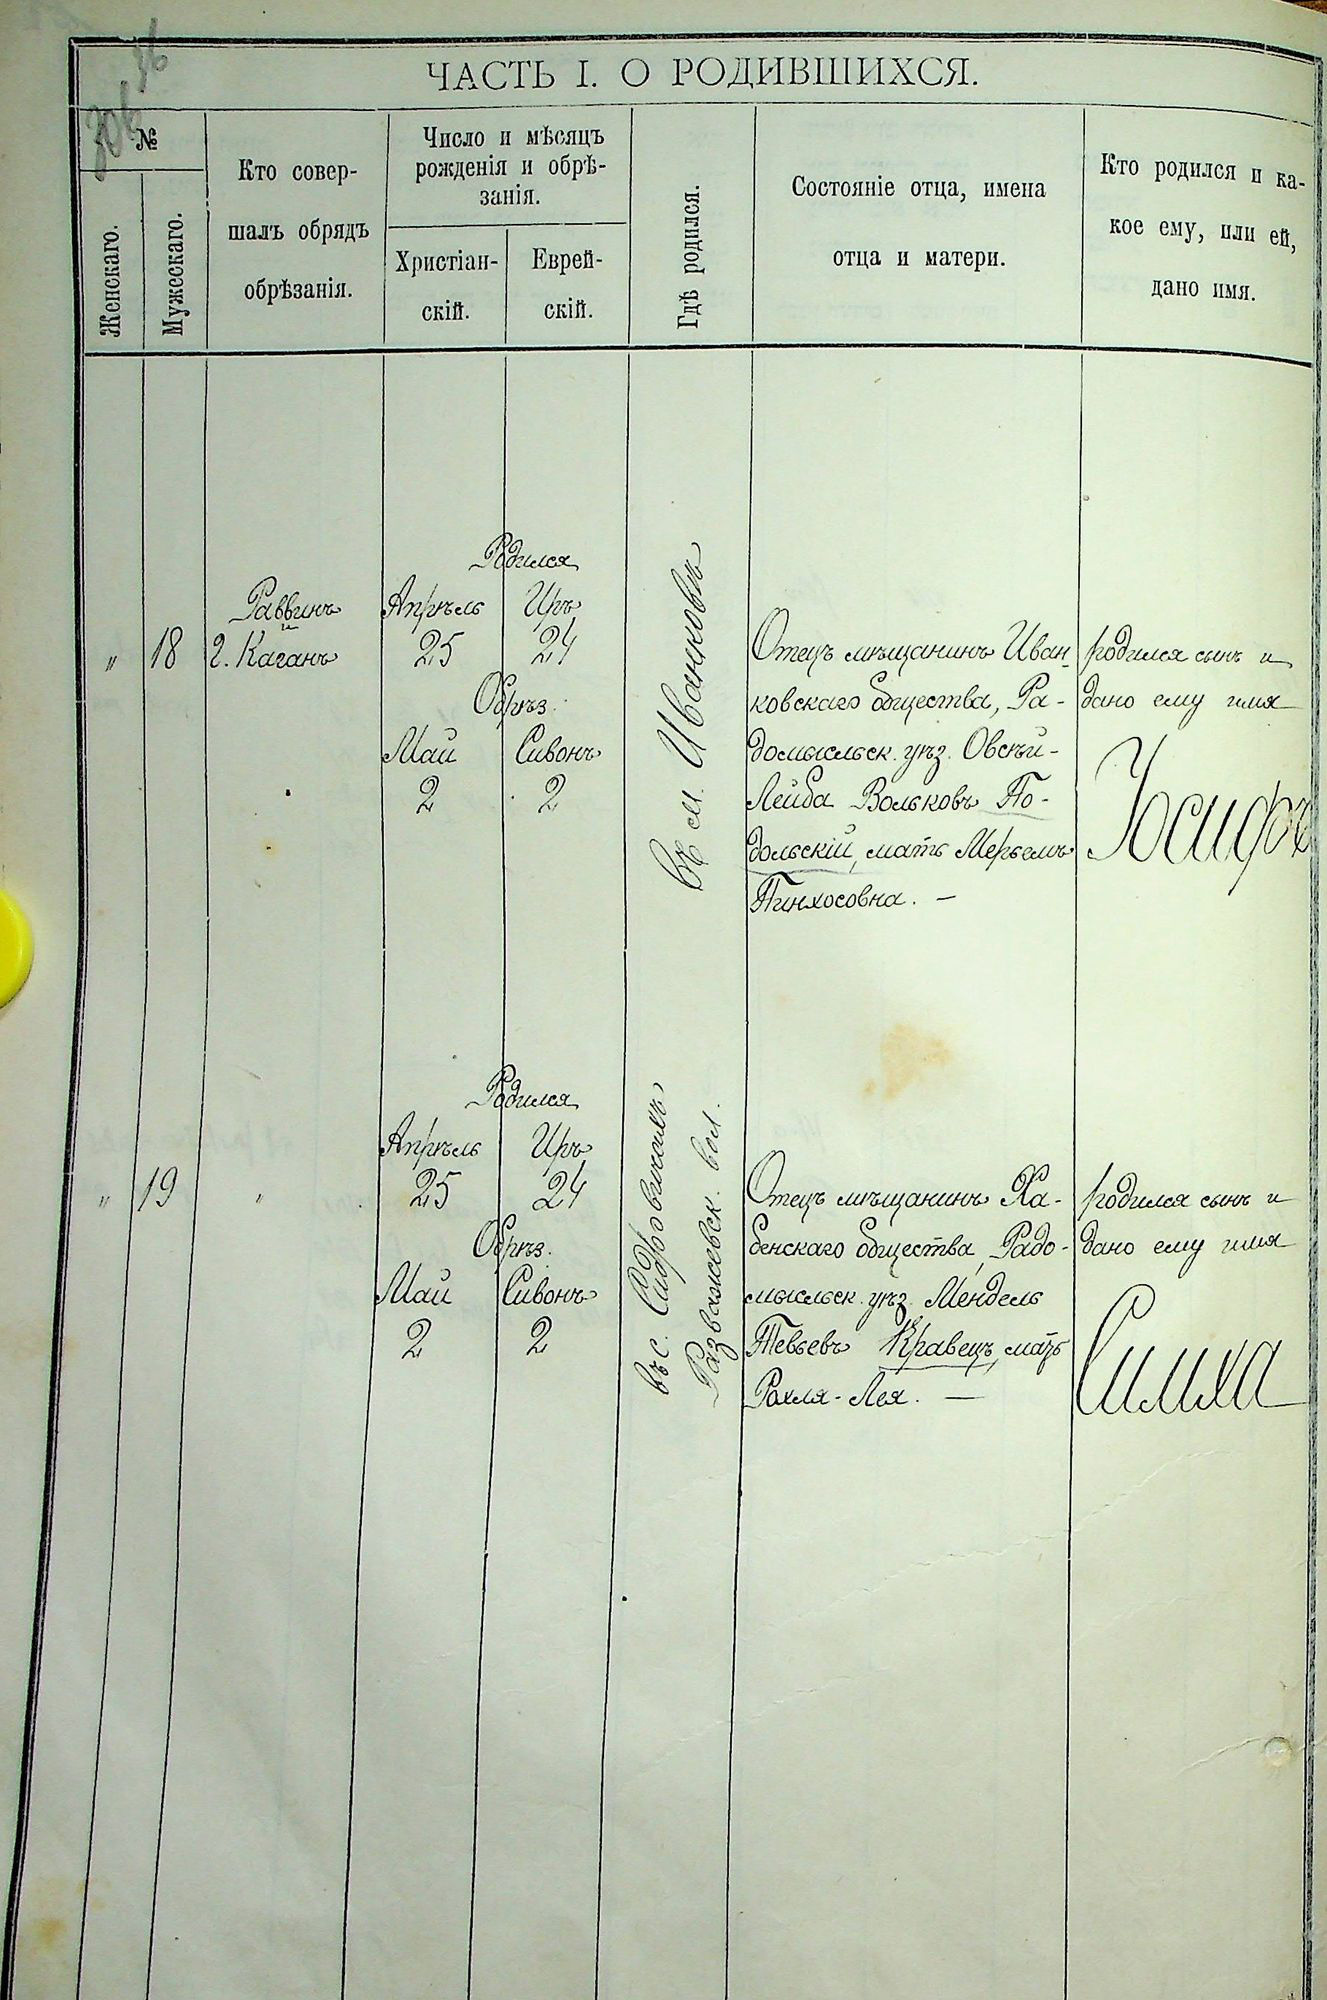 ЧАСТЬ I. О РОДИВШИХСЯ.
№
Женскаго.
Мужескаго.
Кто совер-
шалъ обрядъ
обрѣзанія.
Число и мѣсяцъ
рожденія и обрѣ-
занія.
Христіан-
скій.
Еврей-
скій.
Гдѣ родился.
Состояніе отца, имена
отца и матери.
Кто родился и ка-
кое ему, или ей,
дано имя.
„
18
Раввинъ
г. Каганъ
Родился
Апрѣль Иръ
25 24
Обрѣз.
Май Сивонъ
2 2
въ м. Иванковъ
Отецъ мѣщанинъ Иван
ковскаго общества, Ра-
домысльск. уѣз. Овсѣй-
Лейба Вольковъ По-
дольскій, мать Мерьемъ
Пинхосовна. —
родился сынъ и
дано ему имя
Иосифъ
„
19
„
Родился
Апрѣль Иръ
25 24
Обрѣз.
Май Сивонъ
2 2
въ с.
вол.
Отецъ мѣщанинъ Ха-
бенскаго общества, Радо-
мысльск. уѣз. Мендель
Тевьевъ Кравецъ, мать
Рахля-Лея. —
родился сынъ и
дано ему имя
Симха